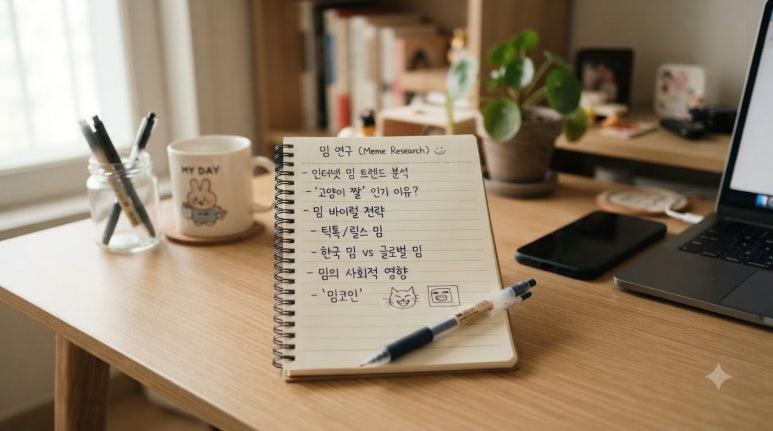 MY DAY
밈 연구 (Meme Research)
- 인터넷 밈 트렌드 분석
- '고양이 짤' 인기 이유?
- 밈 바이럴 전략
- 틱톡/릴스 밈
- 한국 밈 vs 글로벌 밈
- 밈의 사회적 영향
- '밈코인'